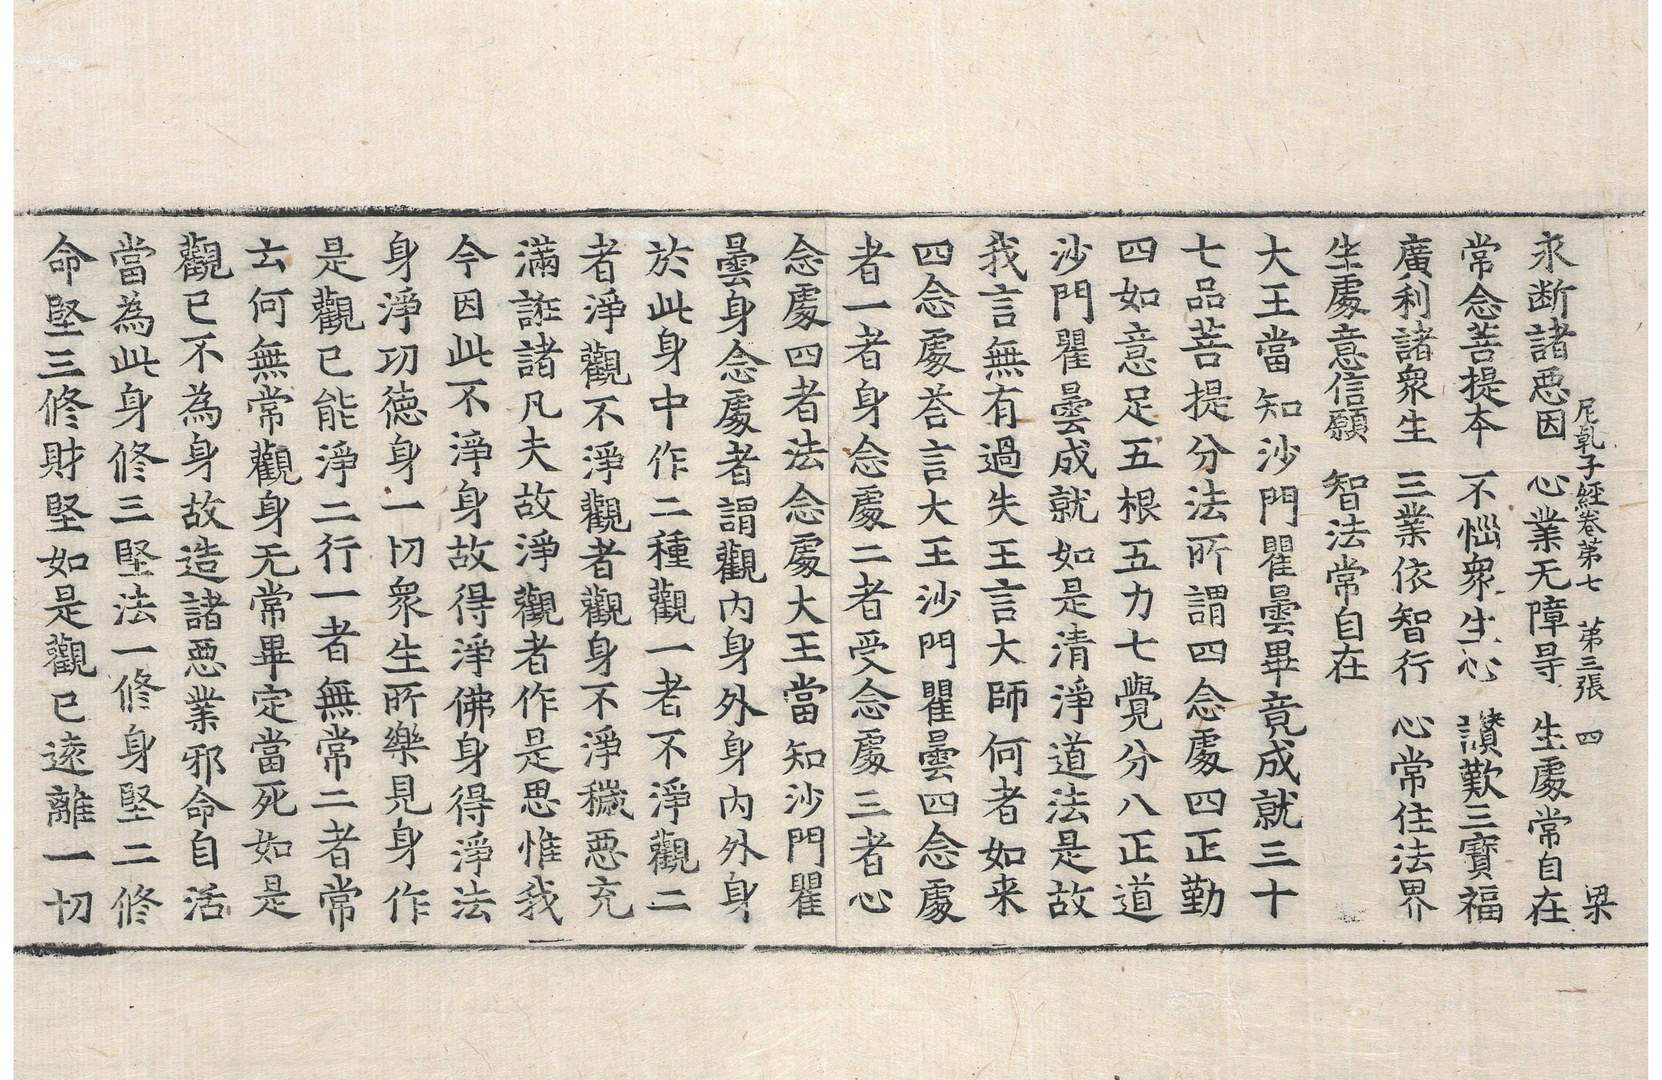 尼乹子經卷苐七　苐三張　四　梁
永断諸惡因　心業无障㝵　生處常自在
常念菩提本　不惱衆生心　讃歎三寶福
廣利諸衆生　三業依智行　心常住法界
生處意信願　智法常自在
大王當知沙門瞿曇畢竟成就三十
七品菩提分法所謂四念處四正勤
四如意足五根五力七覺分八正道
沙門瞿曇成就如是清淨道法是故
我言無有過失王言大師何者如来
四念處荅言大王沙門瞿曇四念處
者一者身念處二者受念處三者心
念處四者法念處大王當知沙門瞿
曇身念處者謂觀内身外身内外身
於此身中作二種觀一者不淨觀二
者淨觀不淨觀者觀身不淨穢惡充
滿誑諸凡夫故淨觀者作是思惟我
今因此不淨身故得淨佛身得淨法
身淨功德身一切衆生所樂見身作
是觀已能淨二行一者無常二者常
云何無常觀身无常畢定當死如是
觀已不為身故造諸惡業邪命自活
當為此身修三堅法一修身堅二修
命堅三修財堅如是觀已遠離一切